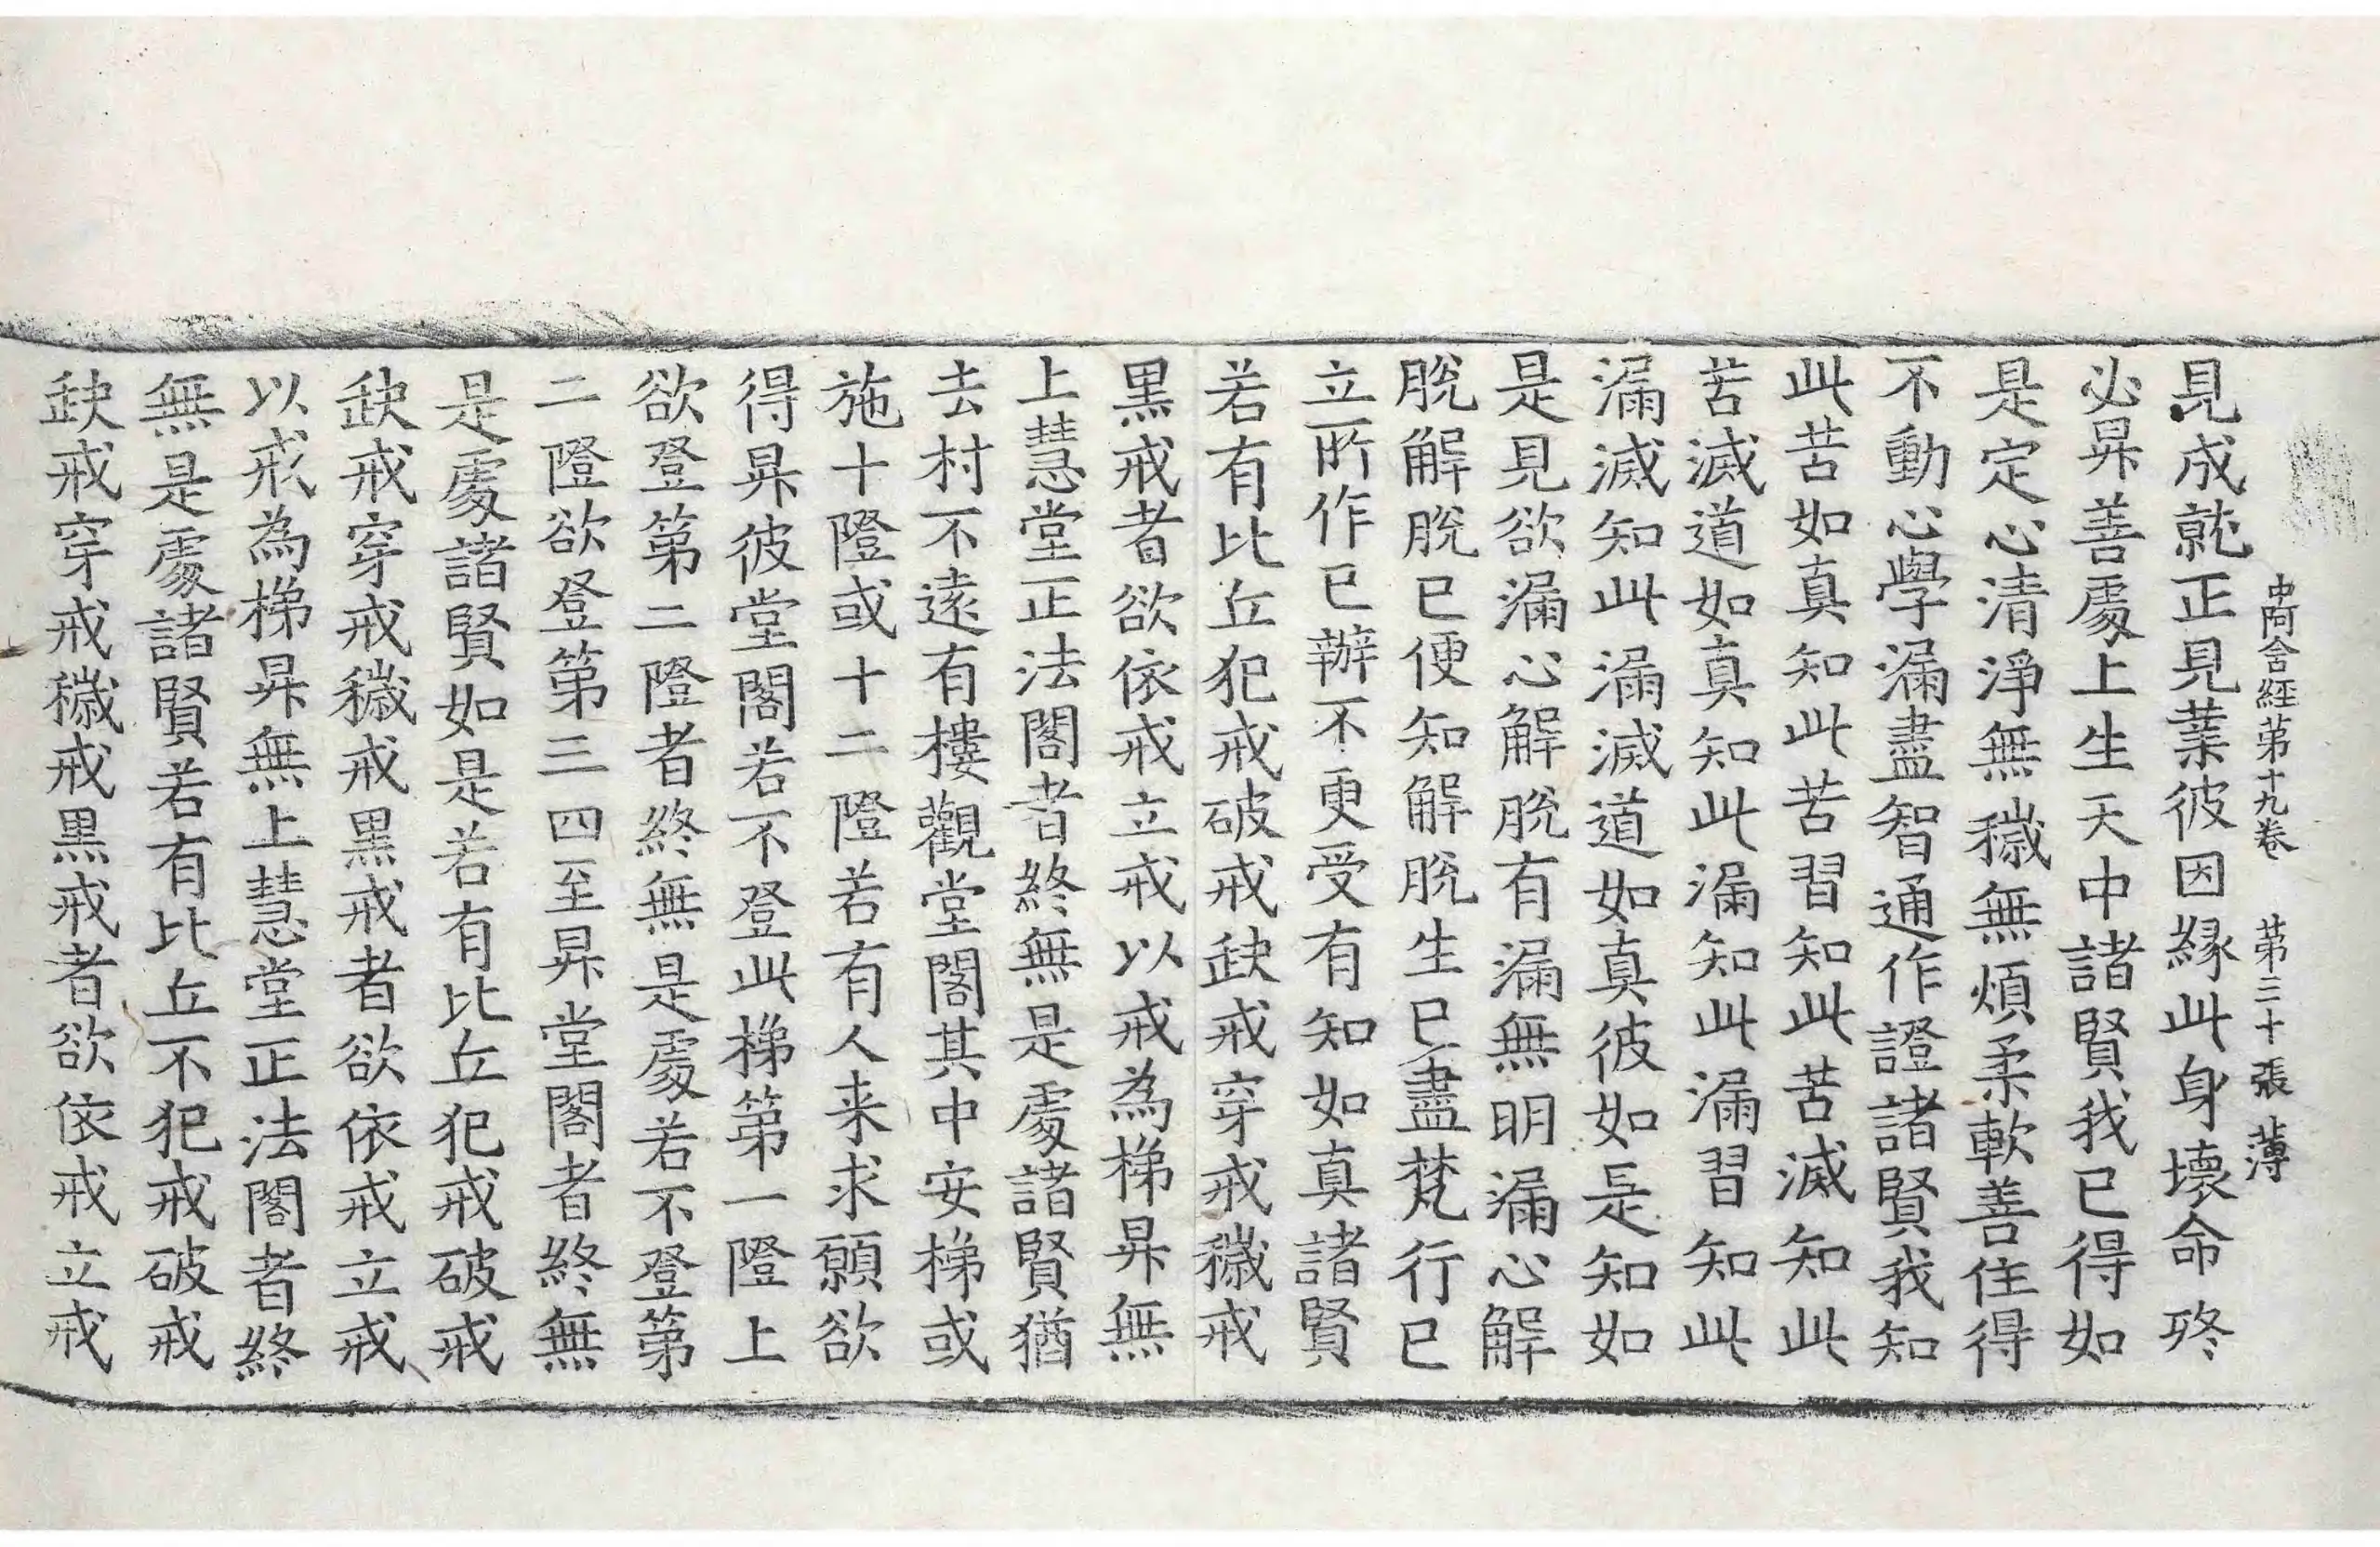 中阿含經第十九卷　第三十張　薄
見成就正見業彼因緣此身壞命終
必昇善處上生天中諸賢我已得如
是定心清淨無穢無煩柔軟善住得
不動心學漏盡智通作證諸賢我知
此苦如真知此苦習知此苦滅知此
苦滅道如真知此漏知此漏習知此
漏滅知此漏滅道如真彼如是知如
是見欲漏心解脫有漏無明漏心解
脫解脫已便知解脫生已盡梵行已
立所作已辦不更受有知如真諸賢
若有比丘犯戒破戒缺戒穿戒穢戒
黑戒者欲依戒立戒以戒為梯昇無
上慧堂正法閣者終無是處諸賢猶
去村不遠有樓觀堂閣其中安梯或
施十隥或十二隥若有人來求願欲
得昇彼堂閣若不登此梯第一隥上
欲登第二隥者終無是處若不登第
二隥欲登第三四至昇堂閣者終無
是處諸賢如是若有比丘犯戒破戒
缺戒穿戒穢戒黑戒者欲依戒立戒
以戒為梯昇無上慧堂正法閣者終
無是處諸賢若有比丘不犯戒破戒
缺戒穿戒穢戒黑戒者欲依戒立戒